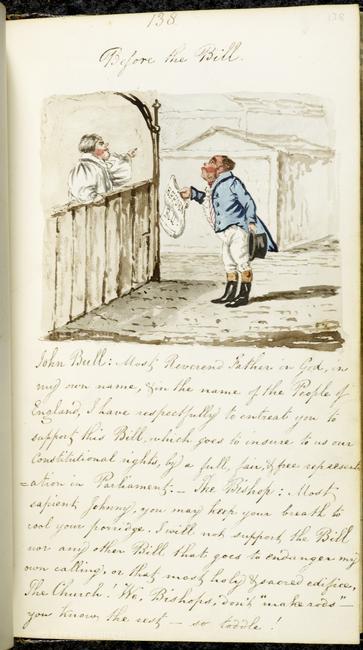 138
138
Before the Bill.
John Bull: Most Reverend Father in God, in
my own name, & in the name of the People of
England, I have respectfully to entreat you to
support this Bill, which goes to insure to us our
Constitutional rights, by a full, fair, & free represent
=ation in Parliament. — The Bishop: Most
sapient Johnny, you may keep your breath to
cool your porridge. I will not support the Bill
nor any other Bill that goes to endanger my
own calling, or that most holy & sacred edifice,
The Church! We, Bishops, don't "make rods" —
you know the rest — so toddle!